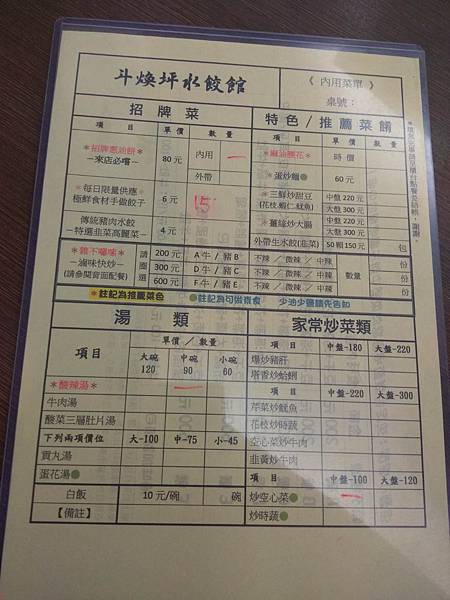 斗煥坪水餃館
《 內用菜單 》
桌號：
招牌菜
項目 單價 數量
＊招牌蔥油餅＊
－來店必嚐－
80 元
內用 一
外帶
＊每日限量供應＊
極鮮食材手做餃子
6 元
15
傳統豬肉水餃
－特選韭菜高麗菜－
4 元
＊雞不囉嗦＊
－滷味快炒－
(請參閱背面配餐)
請圈選
200 元 A牛 / 豬B
300 元 C牛 / 豬D
600 元 F牛 / 豬E
特色/推薦菜餚
項目 單價 數量
＊麻油腰花＊ 時價
＊蛋炒麵● 60 元
＊三鮮炒甜豆
(花枝.蝦仁.魷魚)
中盤 220 元
大盤 300 元
＊薑絲炒大腸
中盤 220 元
大盤 300 元
外帶生水餃(韭菜) 50 顆 150 元 包
不辣 / 微辣 / 中辣 份
不辣 / 微辣 / 中辣 數量 份
不辣 / 微辣 / 中辣 份
＊註記為推薦菜色 ●註記為可做素食 少油少鹽請先告知
湯類
項目
單價 / 數量
大碗 120
中碗 90
小碗 60
＊酸辣湯＊ 一
牛肉湯
酸菜三層肚片湯
下列兩項價位 大-100 中-75 小-45
貢丸湯
蛋花湯●
白飯 10 元/碗 碗
【備註】
家常炒菜類
項目 中盤-180 大盤-220
爆炒豬肝
塔香炒蛤蜊
項目 中盤-220 大盤-300
芹菜炒魷魚
花枝炒時蔬
空心菜炒牛肉
韭黃炒牛肉
項目 中盤-100 大盤-120
炒空心菜● 一
炒時蔬●